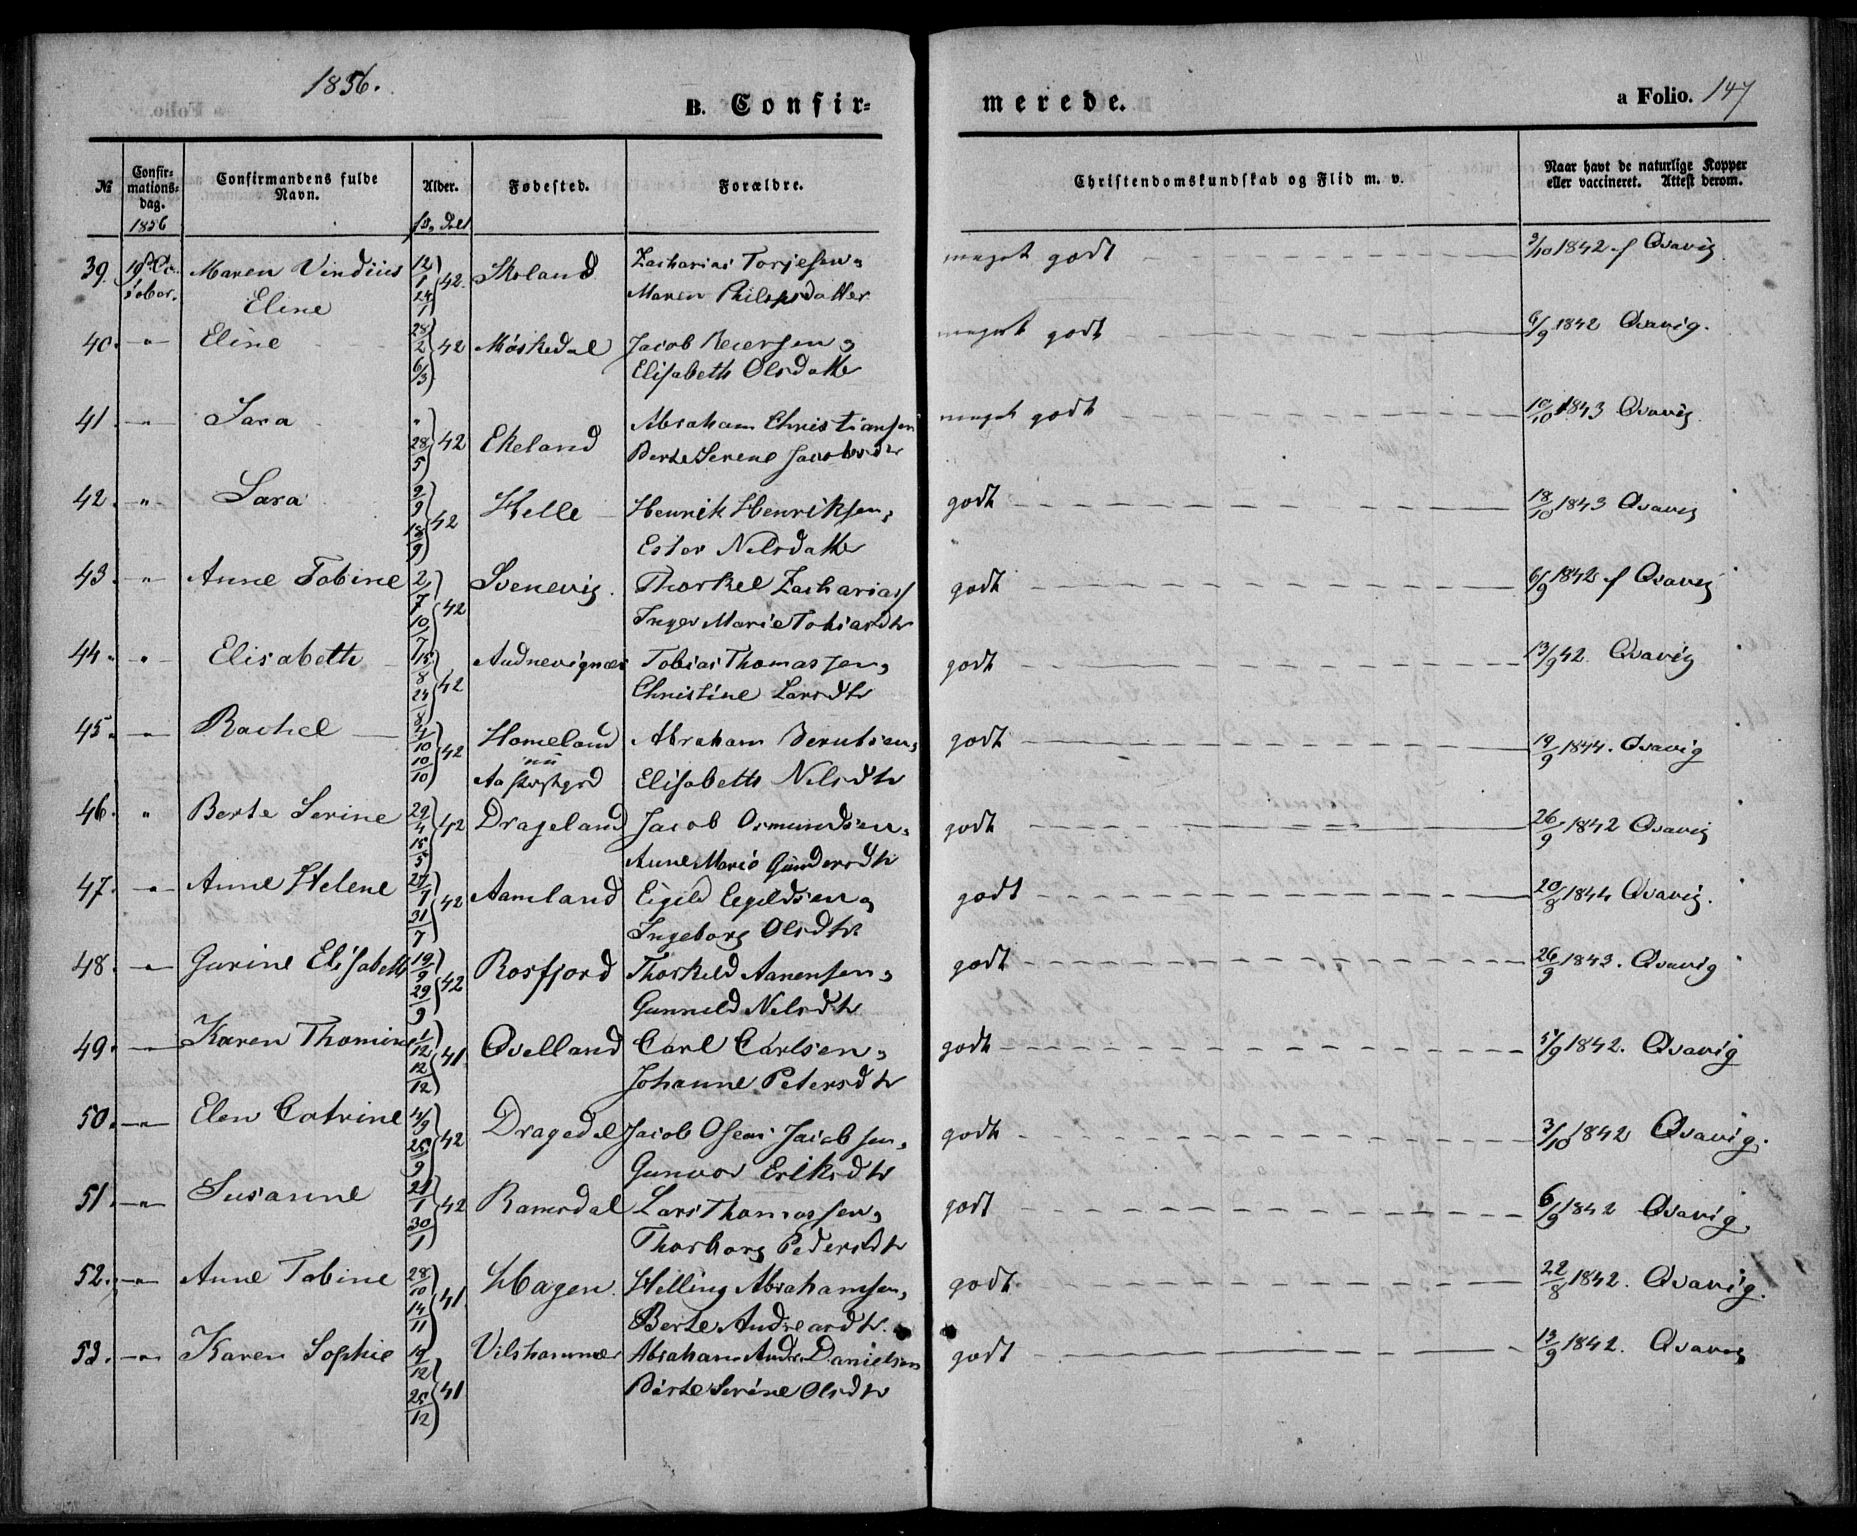 1856.
B. Confir=
merede.
a Folio. 147
№
Confir-
mations-
dag.
1856
Confirmandens fulde
Navn.
Alder.
fd, døbt
Fødested.
Forældre.
Christendomskundskab og Flid m. v.
Naar havt de naturlige Kopper
eller vaccineret. Attest derom.
39. 19de Oc- Maren Vindius 12/1 24/1 42. Skoland Zacharias Torjesen, meget godt 3/10 1842 f Qvavig
tober. Eline Maren Philipsdatter
40. " Eline 28/2 6/3 42 Møskedal Jacob Reiersen, meget godt 6/9 1842 Qvavig.
Elisabeth Olsdatter
41. " Sara " 28/5 42 Ekeland Abraham Christiansen meget godt 10/10 1843 Qvavig
Berte Serene Jacobsdtr
42. " Sara 9/9 18/9 42 Helle Henrik Henriksen, godt 18/10 1843 Qvavig
Ester Nilsdatter
43. " Anne Tobine 2/7 10/7 42 Svenevig. Thorkel Zacharias godt 6/9 1842 f Qvavig
Inger Marie Tobiasdtr
44. " Elisabeth 15/8 24/8 42 Audnevignæs Tobias Thomassen, godt 13/9 42. Qvavig
Christine Larsdtr
45. " Rachel 4/10 10/10 42 Homeland Abraham Berntsen, godt 19/9 1844. Qvavig
nu
Elisabeth Nilsdtr
46. " Berte Serine 29/4 15/5 42 Drageland Jacob Osmundsen, godt 26/9 1842 Qvavig
Anne Marie Gundersdtr
47. " Anne Helene 27/7 31/7 42 Aamland Eigild Eigildsen, godt 20/8 1844 Qvavig.
Ingeborg Olsdtr
48. " Gurine Elisabeth 19/9 29/9 42 Rosfjord Thorkild Aanensen, godt 26/9 1843. Qvavig
Gunnild Nilsdtr
49. " Karen Thomine 1/12 12/12 41. Qvelland Carl Carlsen, godt 5/9 1842. Qvavig
Johanne Petersdtr
50. " Elen Catrine 4/9 25/9 42 Dragedal Jacob Oseas Jacobsen, godt 3/10 1842 Qvavig.
Gunvor Eriksdtr
51. " Susanne 21/1 30/1 42 Ramsdal Lars Thomassen, godt 6/9 1842 Qvavig.
Thorborg Pedersdtr
52. " Anne Tobine 28/10 14/11 41. Hagen. Helling Abrahamsen, godt 22/8 1842. Qvavig.
Berte Andreasdtr.
53. " Karen Sophie 19/12 25/12 41 Vilshammer Abraham Andr. Danielsen godt 13/9 1842. Qvavig
Berte Serine Olsdtr